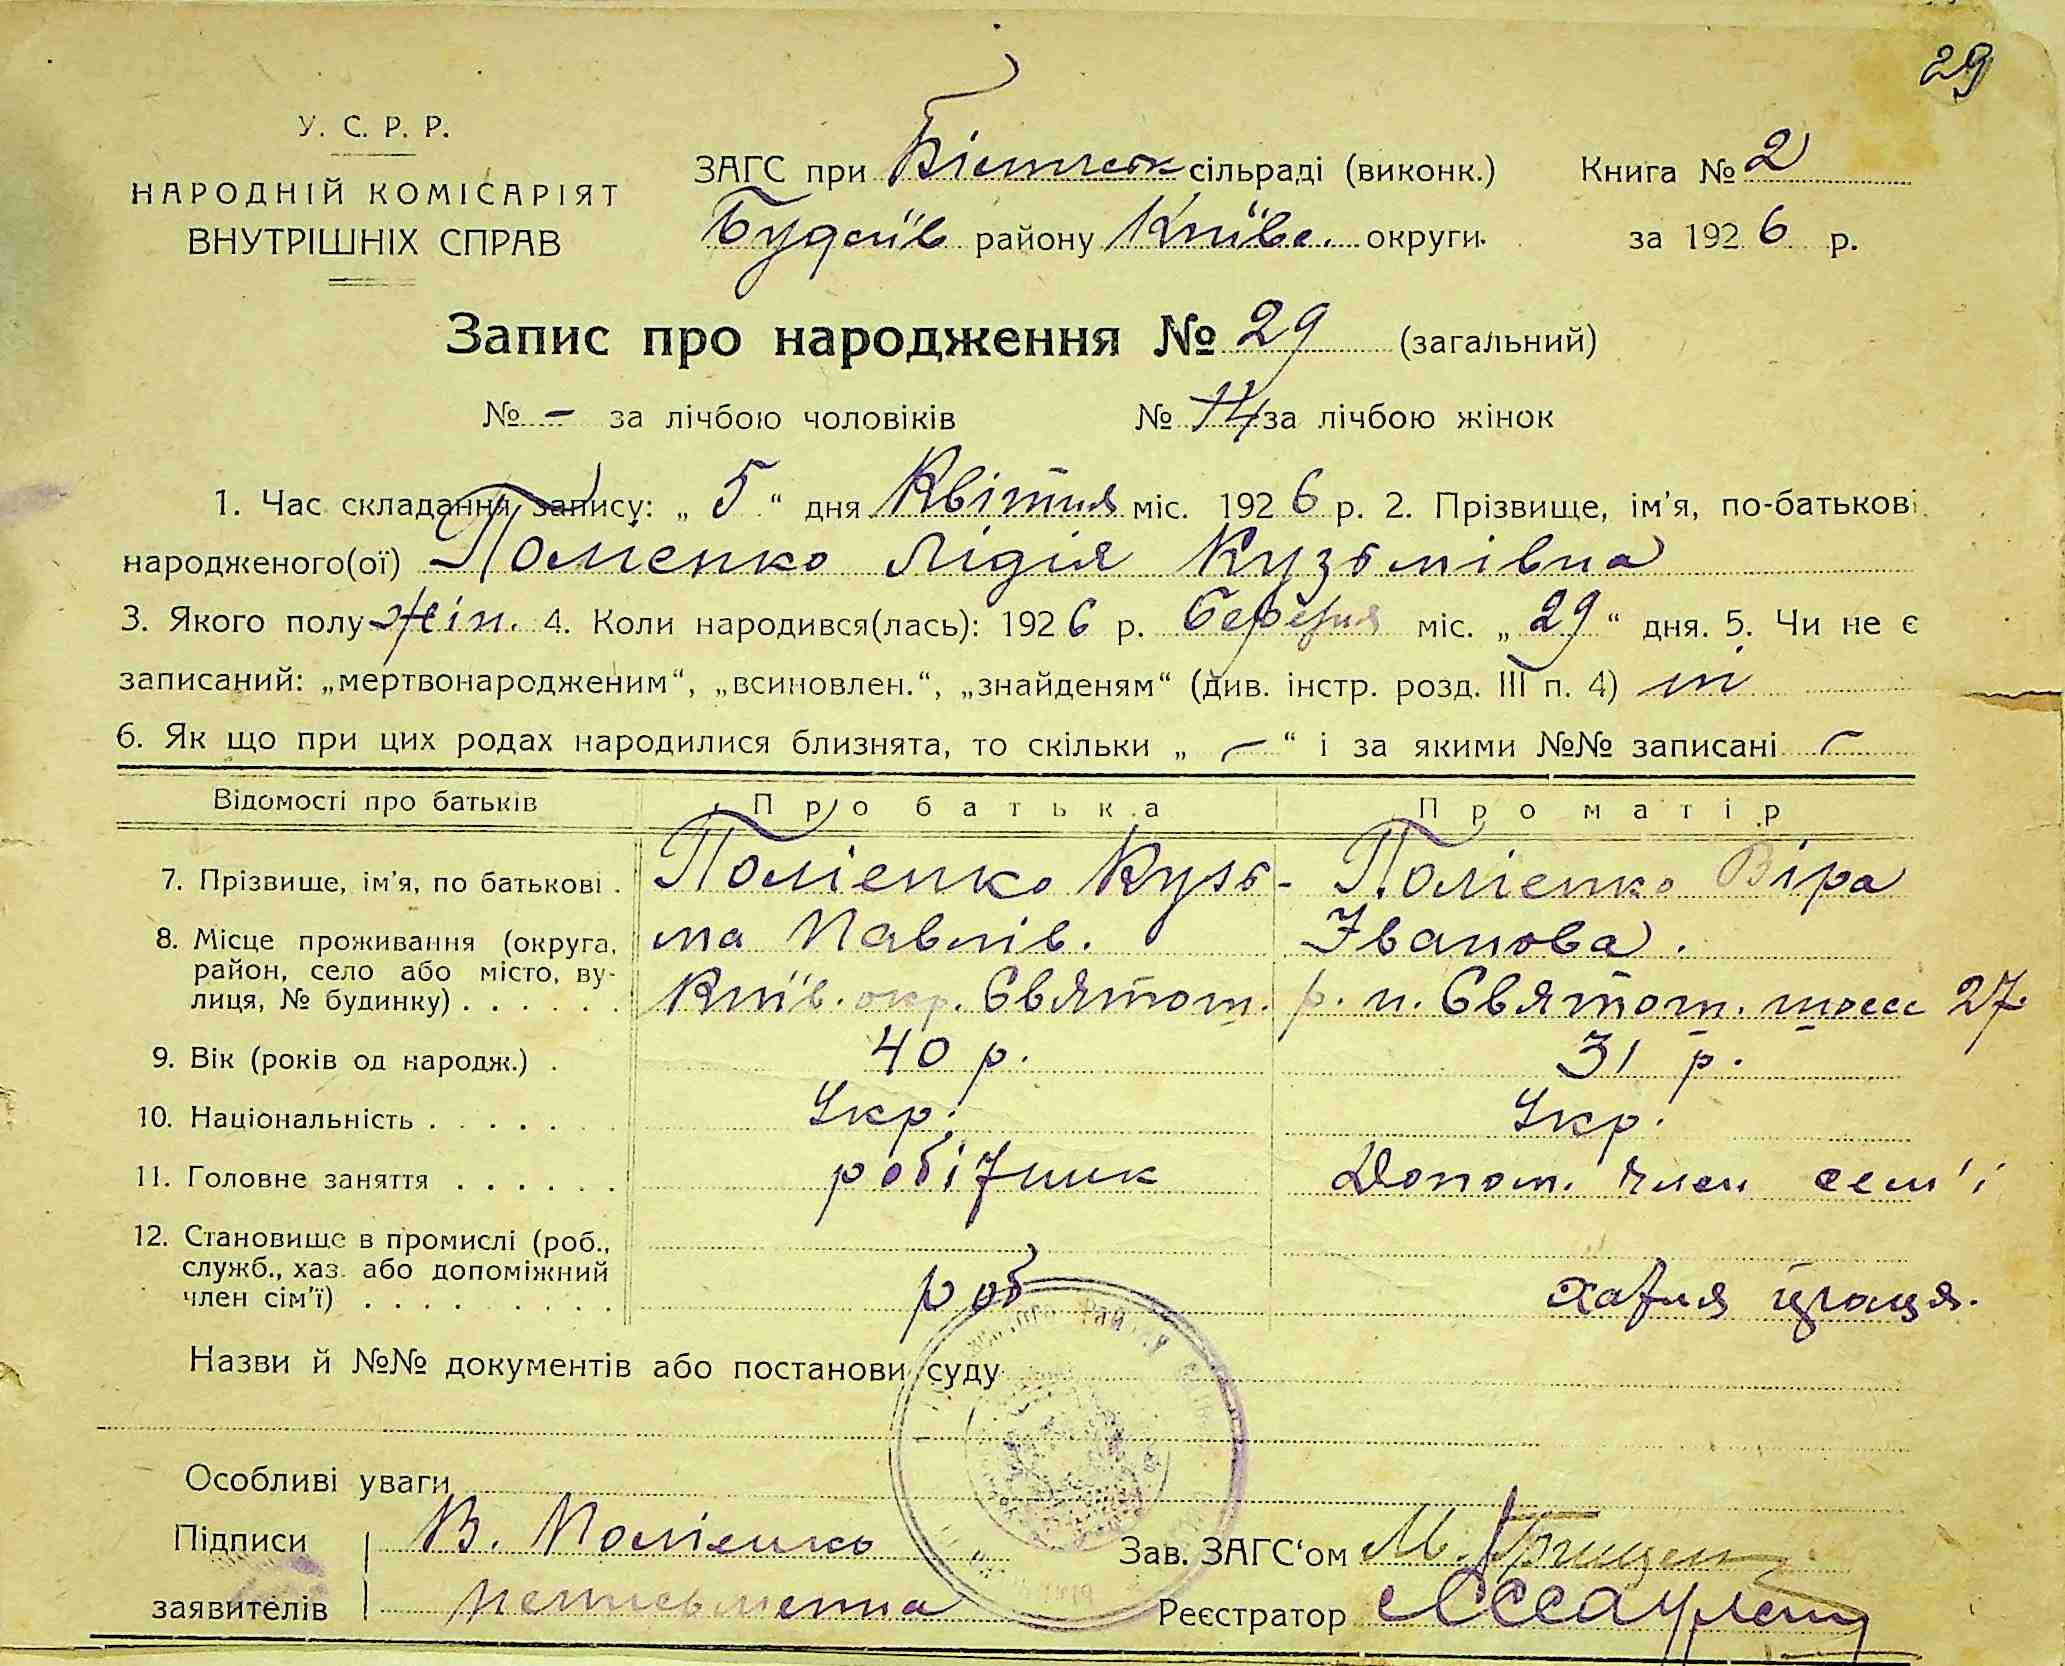 29
У. С. Р. Р.
НАРОДНІЙ КОМІСАРІЯТ
ВНУТРІШНІХ СПРАВ
ЗАГС при сільраді (виконк.)
Будаїв району Київс. округи.
Книга № 2
за 1926 р.
Запис про народження № 29 (загальний)
№ – за лічбою чоловіків № 14 за лічбою жінок
1. Час складання запису: „ 5 “ дня Квітня міс. 1926 р. 2. Прізвище, ім'я, по-батькові
народженого(ої) Поліенко Лідія Кузьмівна
3. Якого полу жін. 4. Коли народився(лась): 1926 р. березня міс. „ 29 “ дня. 5. Чи не є
записаний: „мертвонародженим“, „всиновлен.“, „знайденям“ (див. інстр. розд. III п. 4) ні
6. Як що при цих родах народилися близнята, то скільки „ – “ і за якими №№ записані –
Відомості про батьків Про батька Про матір
7. Прізвище, ім'я, по батькові . Поліенко Кузь- Поліенко Віра
8. Місце проживання (округа, ма Павлів. Іванова.
район, село або місто, ву-
лиця, № будинку) . . . . . . Київ. окр. Святош. р. п. Святош. шосе 27
9. Вік (років од народж.) . 40 р. 31 р.
10. Національність . . . . . . . Укр. Укр.
11. Головне заняття . . . . . . робітник Допом. член сем'ї
12. Становище в промислі (роб.,
служб., хаз. або допоміжний
член сім'ї) . . . . . . . . . роб хатня праця.
Назви й №№ документів або постанови суду
Особливі уваги
Підписи В. Поліенко Зав. ЗАГС'ом М. Грищен
заявителів неписьменна Реєстратор